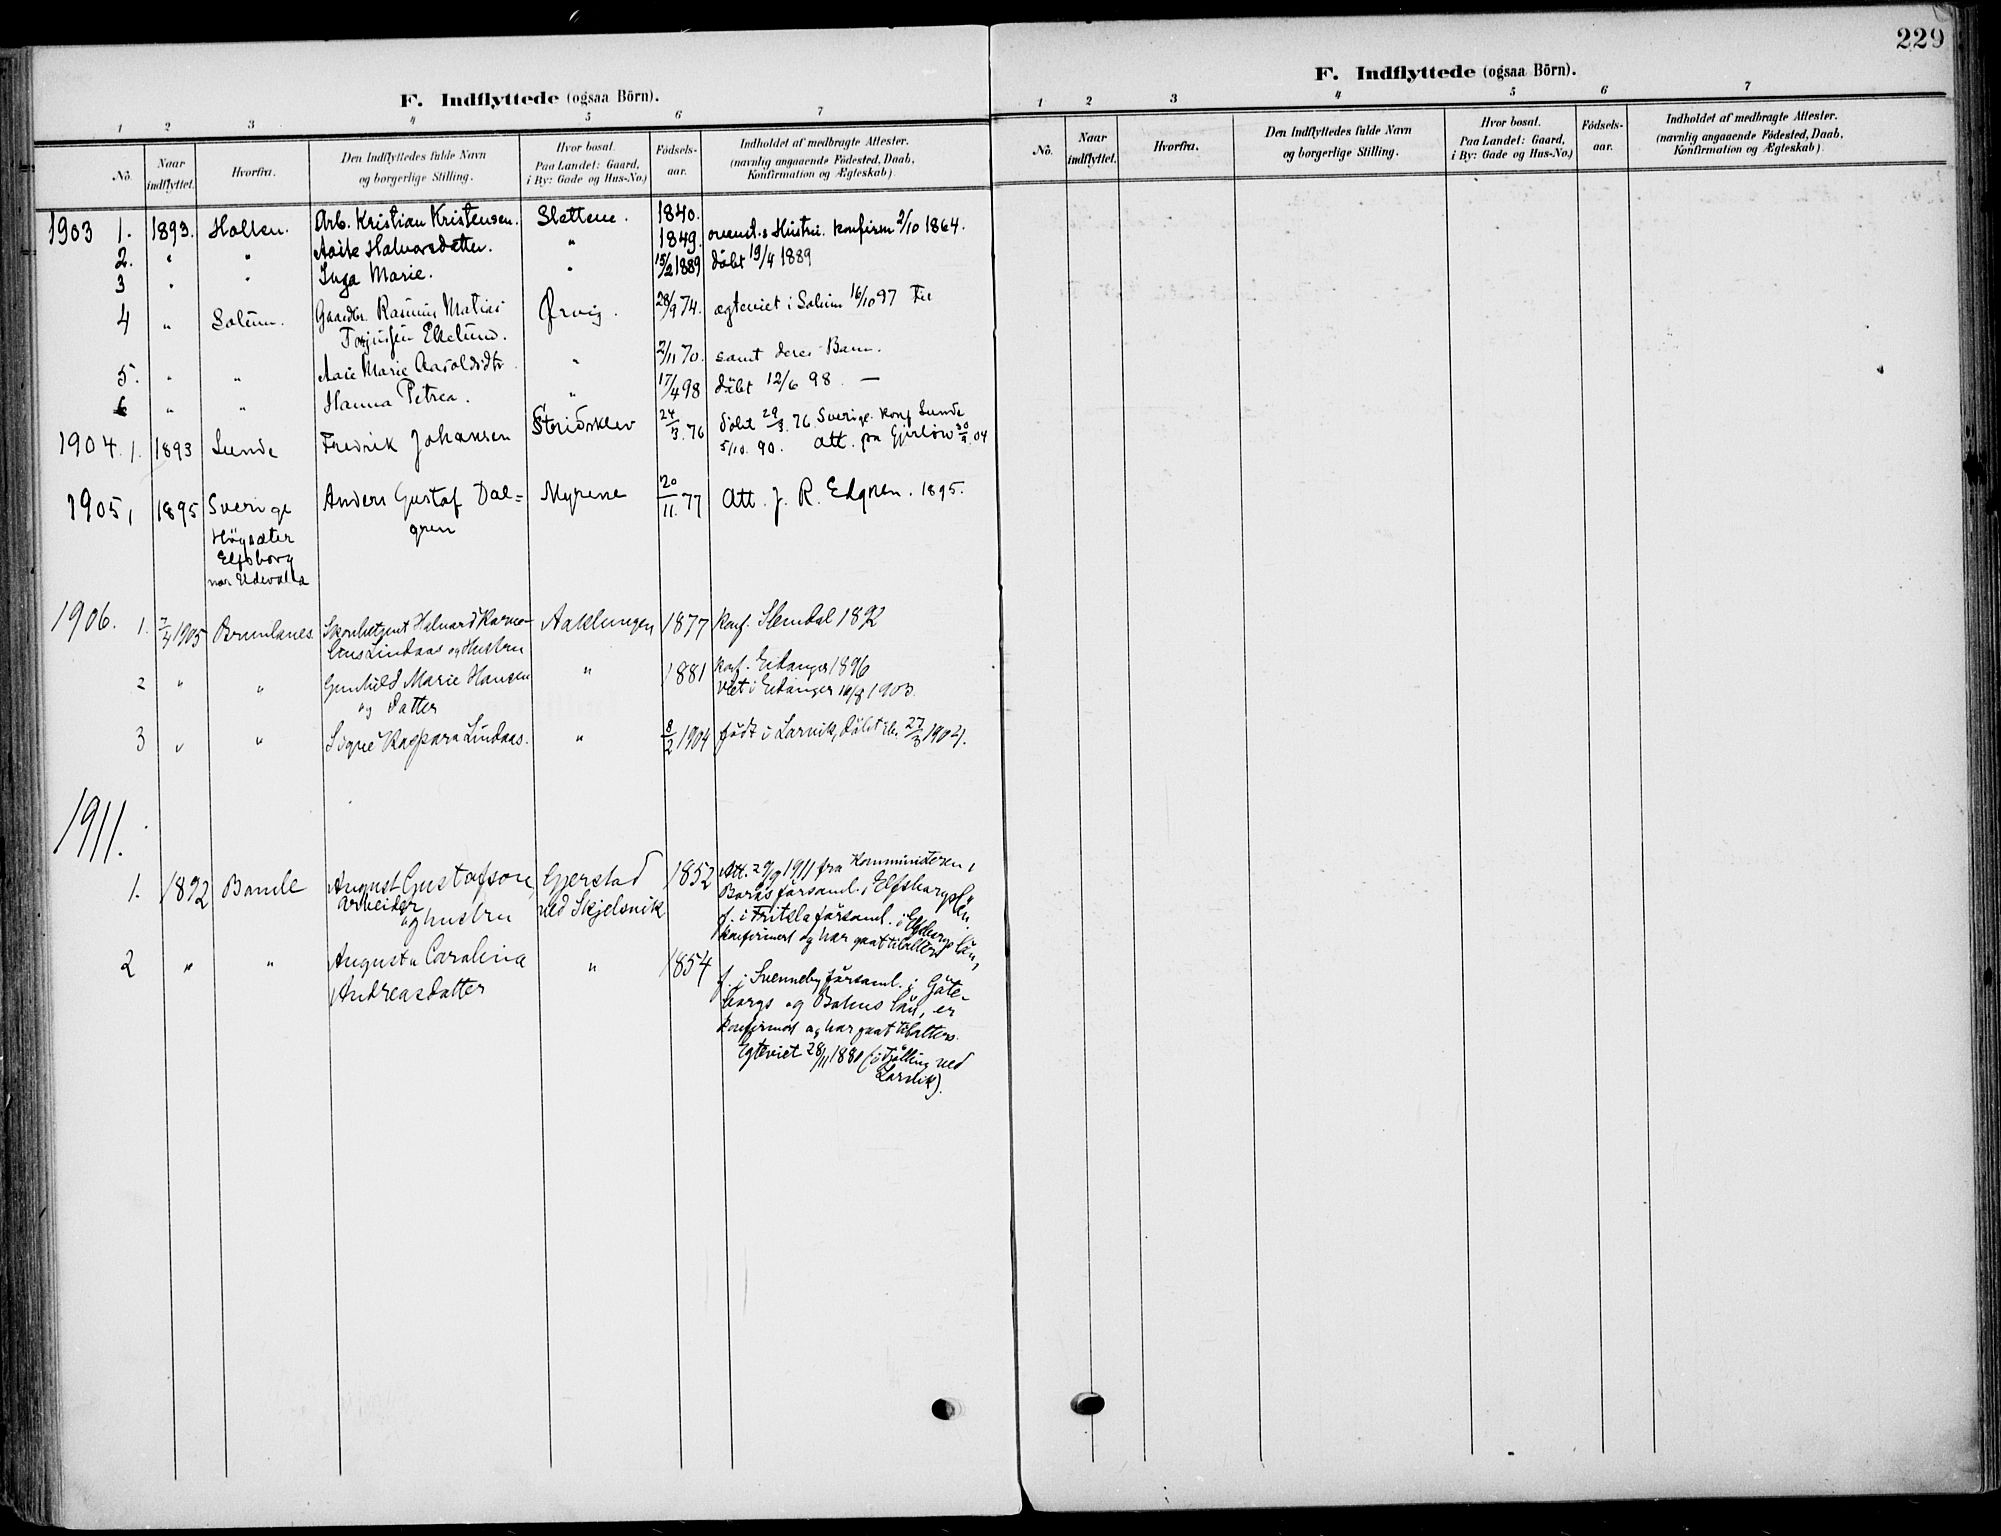 229
F. Indflyttede (ogsaa Börn).
1 2 3 4 5 6 7
No. Naar indflyttet. Hvorfra. Den Indflyttedes fulde Navn og borgerlige Stilling. Hvor bosat. Paa Landet: Gaard, i By: Gade og Hus-No.) Födsels-aar. Indholdet af medbragte Attester. (navnlig angaaende Födested, Daab, Konfirmation og Ægteskab)
1903 1. 1893. Holten. Arb. Kristian Kristensen. Slettene. 1840.
2. " " Halvorsdatter. " 1849. Hustru. Konfirm 2/10 1864.
3 " " Inga Marie. " 15/2 1889 döbt 19/4 1889
4 " Solum. Gaardbr. Rasmus Matias Ørvig. 28/9 74. ægteviet i Solum 16/10 97 Til
Ekelund.
5. " " Marie " 2/11 70. samt deres Barn.
6 " " Hanna Petrea. " 17/4 98 döbt 12/6 98. —
1904. 1. 1893 Lunde Fredrik Johansen 24/3. 76 döbt 29/3. 76 Sverige. Konf Lunde
5/10. 90. Att. pr
1905, 1895 Sverige Anders Gustaf Dal= Myrene 20/11. 77 Att. J. R. Edgren. 1895.
Högsæter gren
Elfsborg
nær Udevalla
1906. 1. 7/4 1905 Brunlanes Halvard Aaklungen 1877 Konf. Slemdal 1892
Lindaas og Hustru
2 " " Gunhild Marie Hansen " 1881 Konf. Eidanger 1896
og Datter viet i Eidanger 16/8 1903.
3 " " Signe Kaspara Lindaas. " 8/2 1904 födt i Larvik, döbt 27/3 1904.
1911.
1. 1892 Bamle August Gustafson, Gjerstad 1852 Att. 29/9 1911 fra Komministeren i
arbeider ved Skjelsvik Borås församl. i Elfsborgs Län
og hustru f. i Fritsla församl. i Elfsborgs län,
konfirmert og har gaat tilalters
2 " " Augusta Carolina " 1854
Andreasdatter f. i Svenneby församl. i Göte-
borgs og Bohus län, er
konfirmert og har gaat tilalters.
Egteviet 28/11 1880 (i Tjölling ved
Larvik).
F. Indflyttede (ogsaa Börn).
1 2 3 4 5 6 7
No. Naar indflyttet. Hvorfra. Den Indflyttedes fulde Navn og borgerlige Stilling. Hvor bosat. Paa Landet: Gaard, i By: Gade og Hus-No.) Födsels-aar. Indholdet af medbragte Attester. (navnlig angaaende Födested, Daab, Konfirmation og Ægteskab)